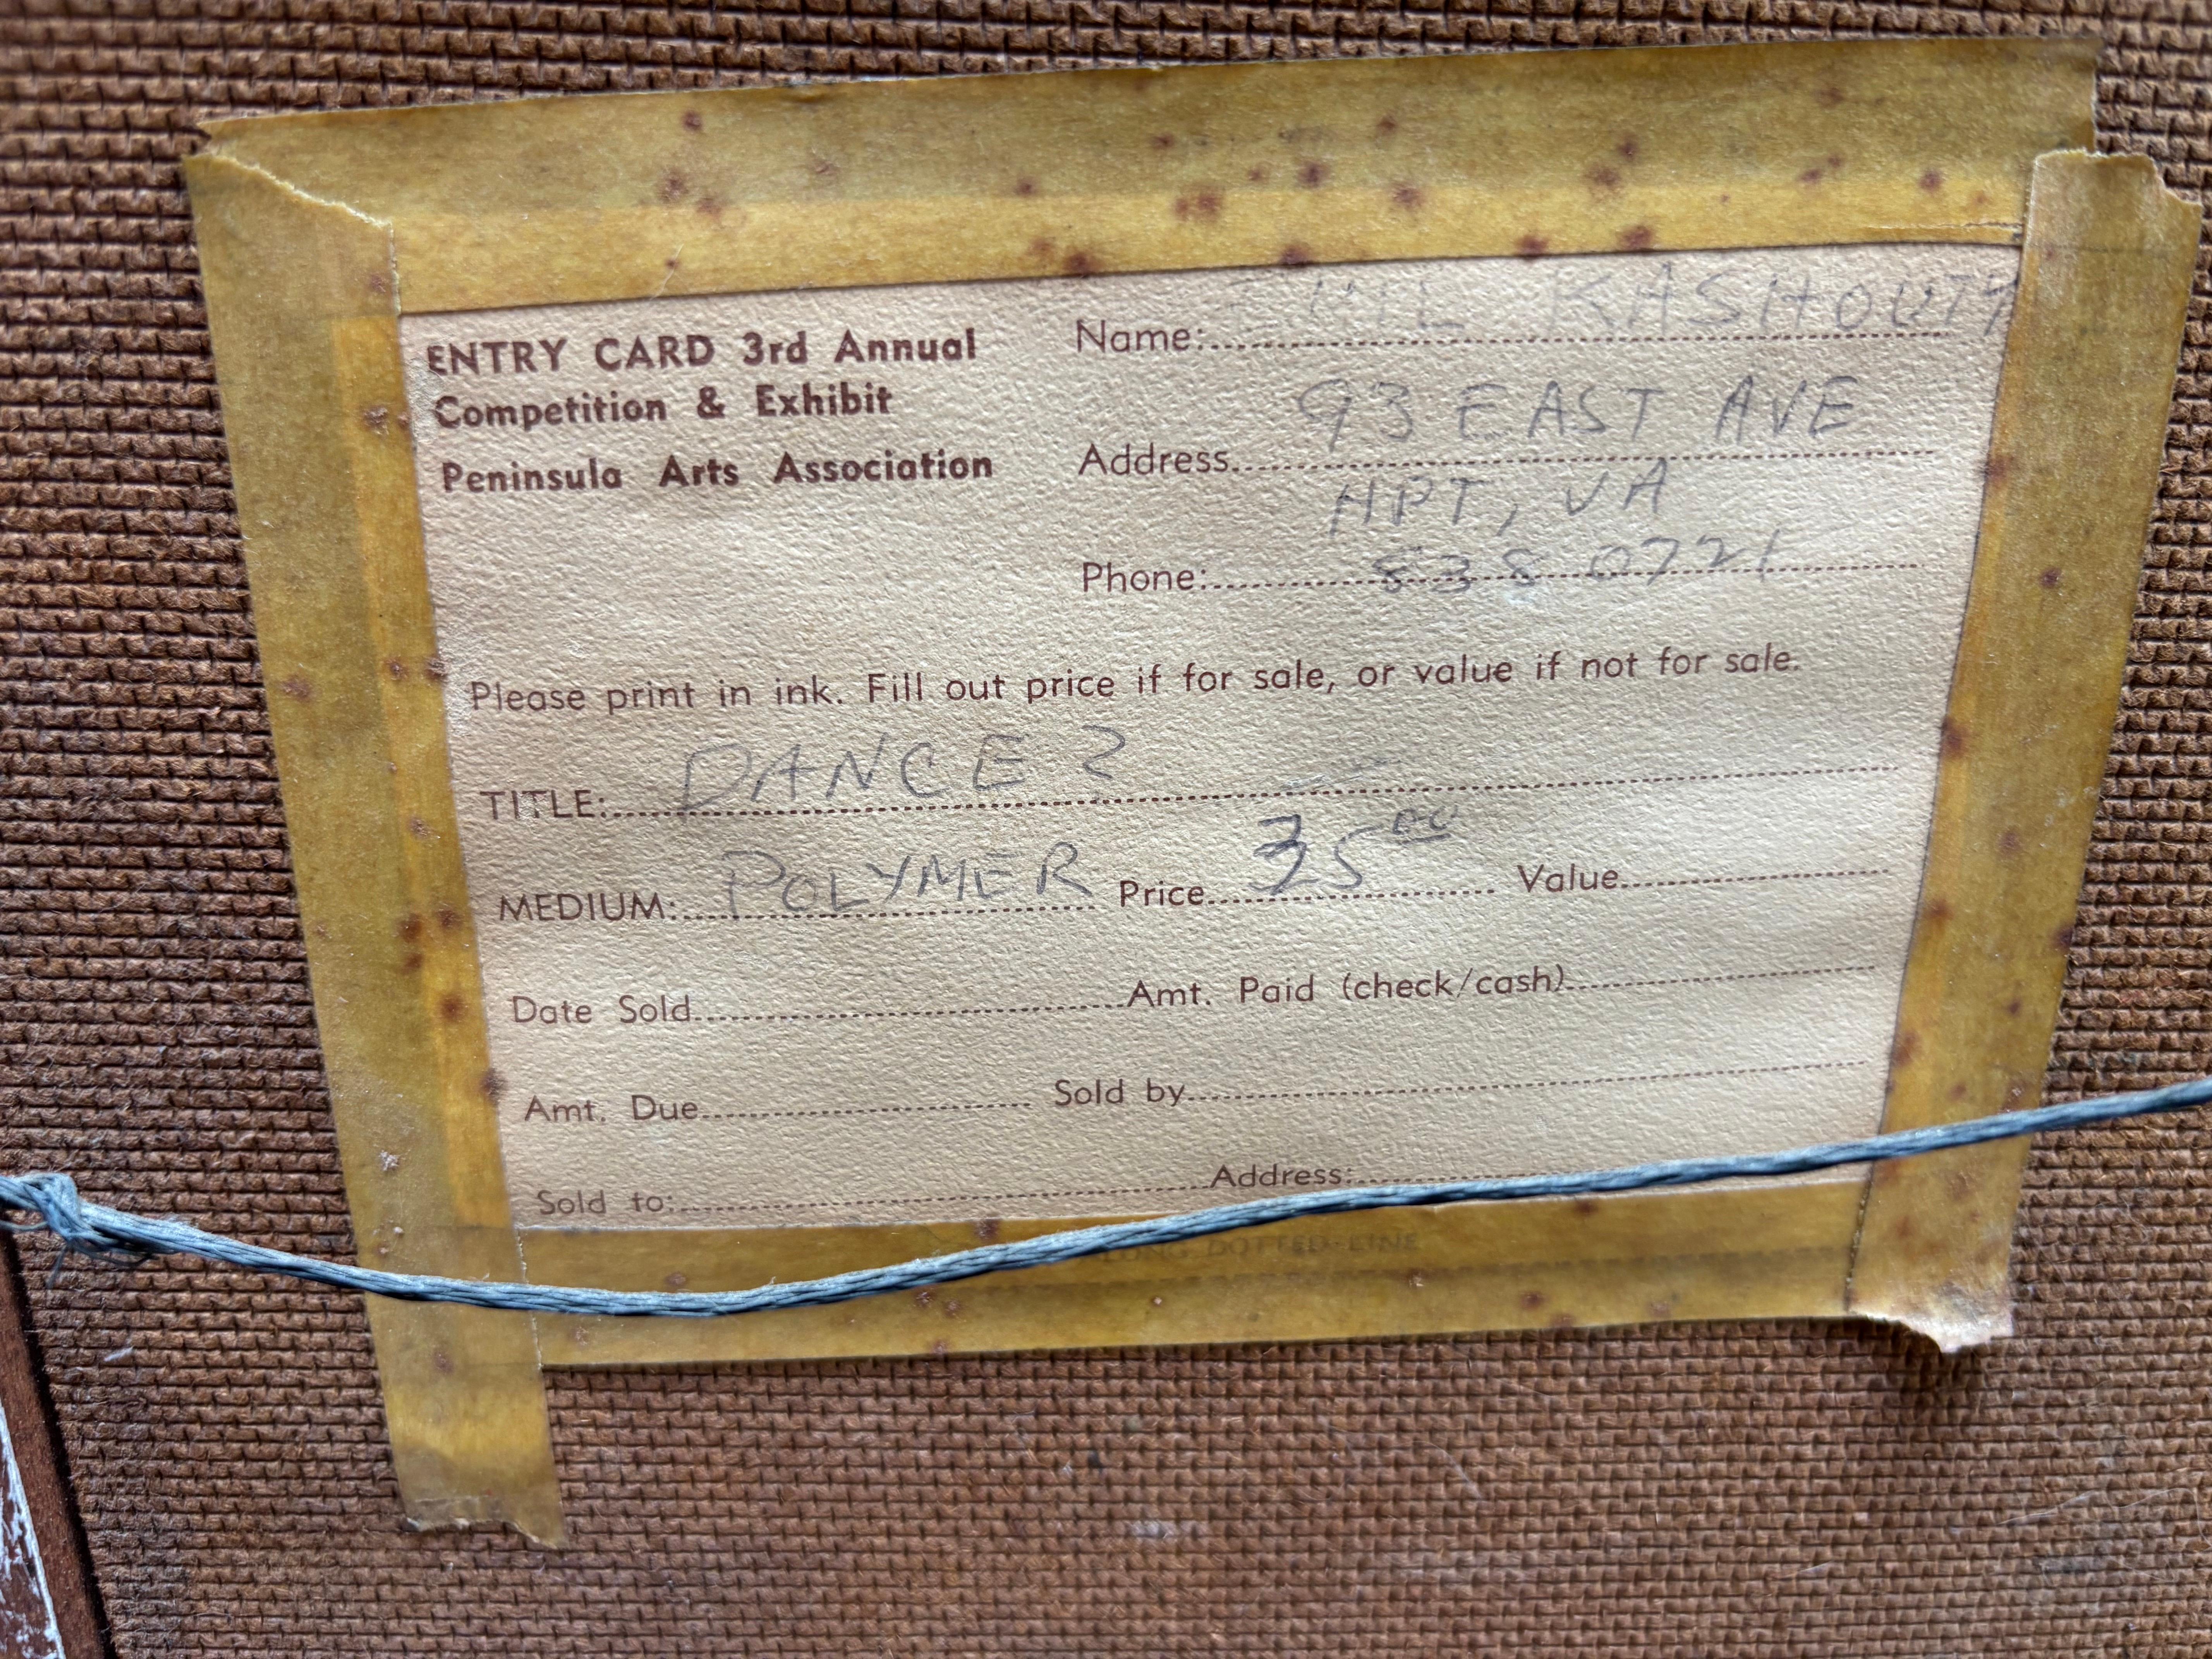 ENTRY CARD 3rd Annual
Competition & Exhibit
Peninsula Arts Association
Name: KASHOUTY
Address 93 EAST AVE
HPT, VA
Phone: 838 0721
Please print in ink. Fill out price if for sale, or value if not for sale.
TITLE: DANCE 2
MEDIUM: POLYMER Price 35 00 Value
Date Sold Amt. Paid (check/cash)
Amt. Due Sold by
Sold to: Address:
LONG DOTTED LINE